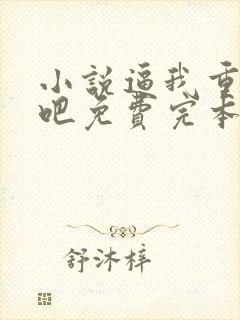 小说逼我重
吧免费完本
舒沐梓